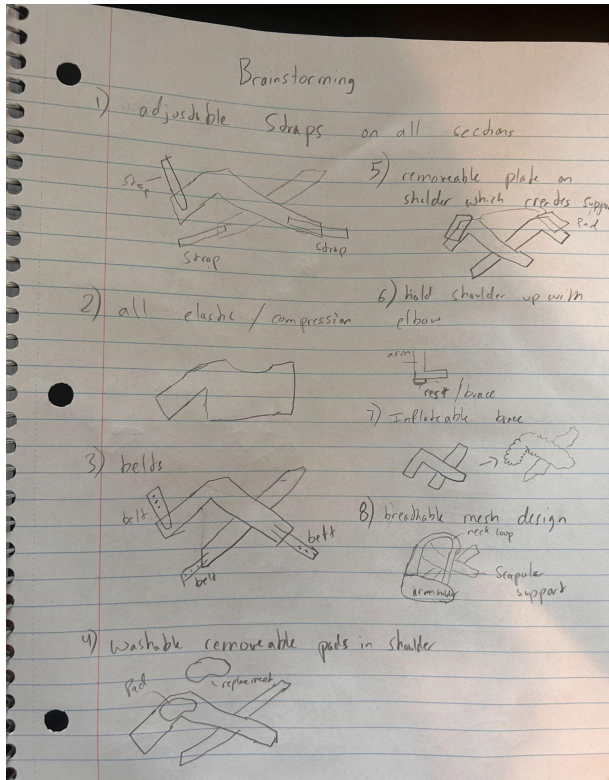 Brainstorming
1) adjustable Straps on all sections
Strap
Strap
Strap
2) all elastic / compression
3) belts
belt
belt
belt
4) Washable removeable pads in shoulder
Pad
replacement
5) removeable plate on
sholder which creates suppor
Pad
6) hold shoulder up with
elbow
arm
rest / brace
7) Inflateable brace
8) breathable mesh design
neck loop
Scapular
support
arm